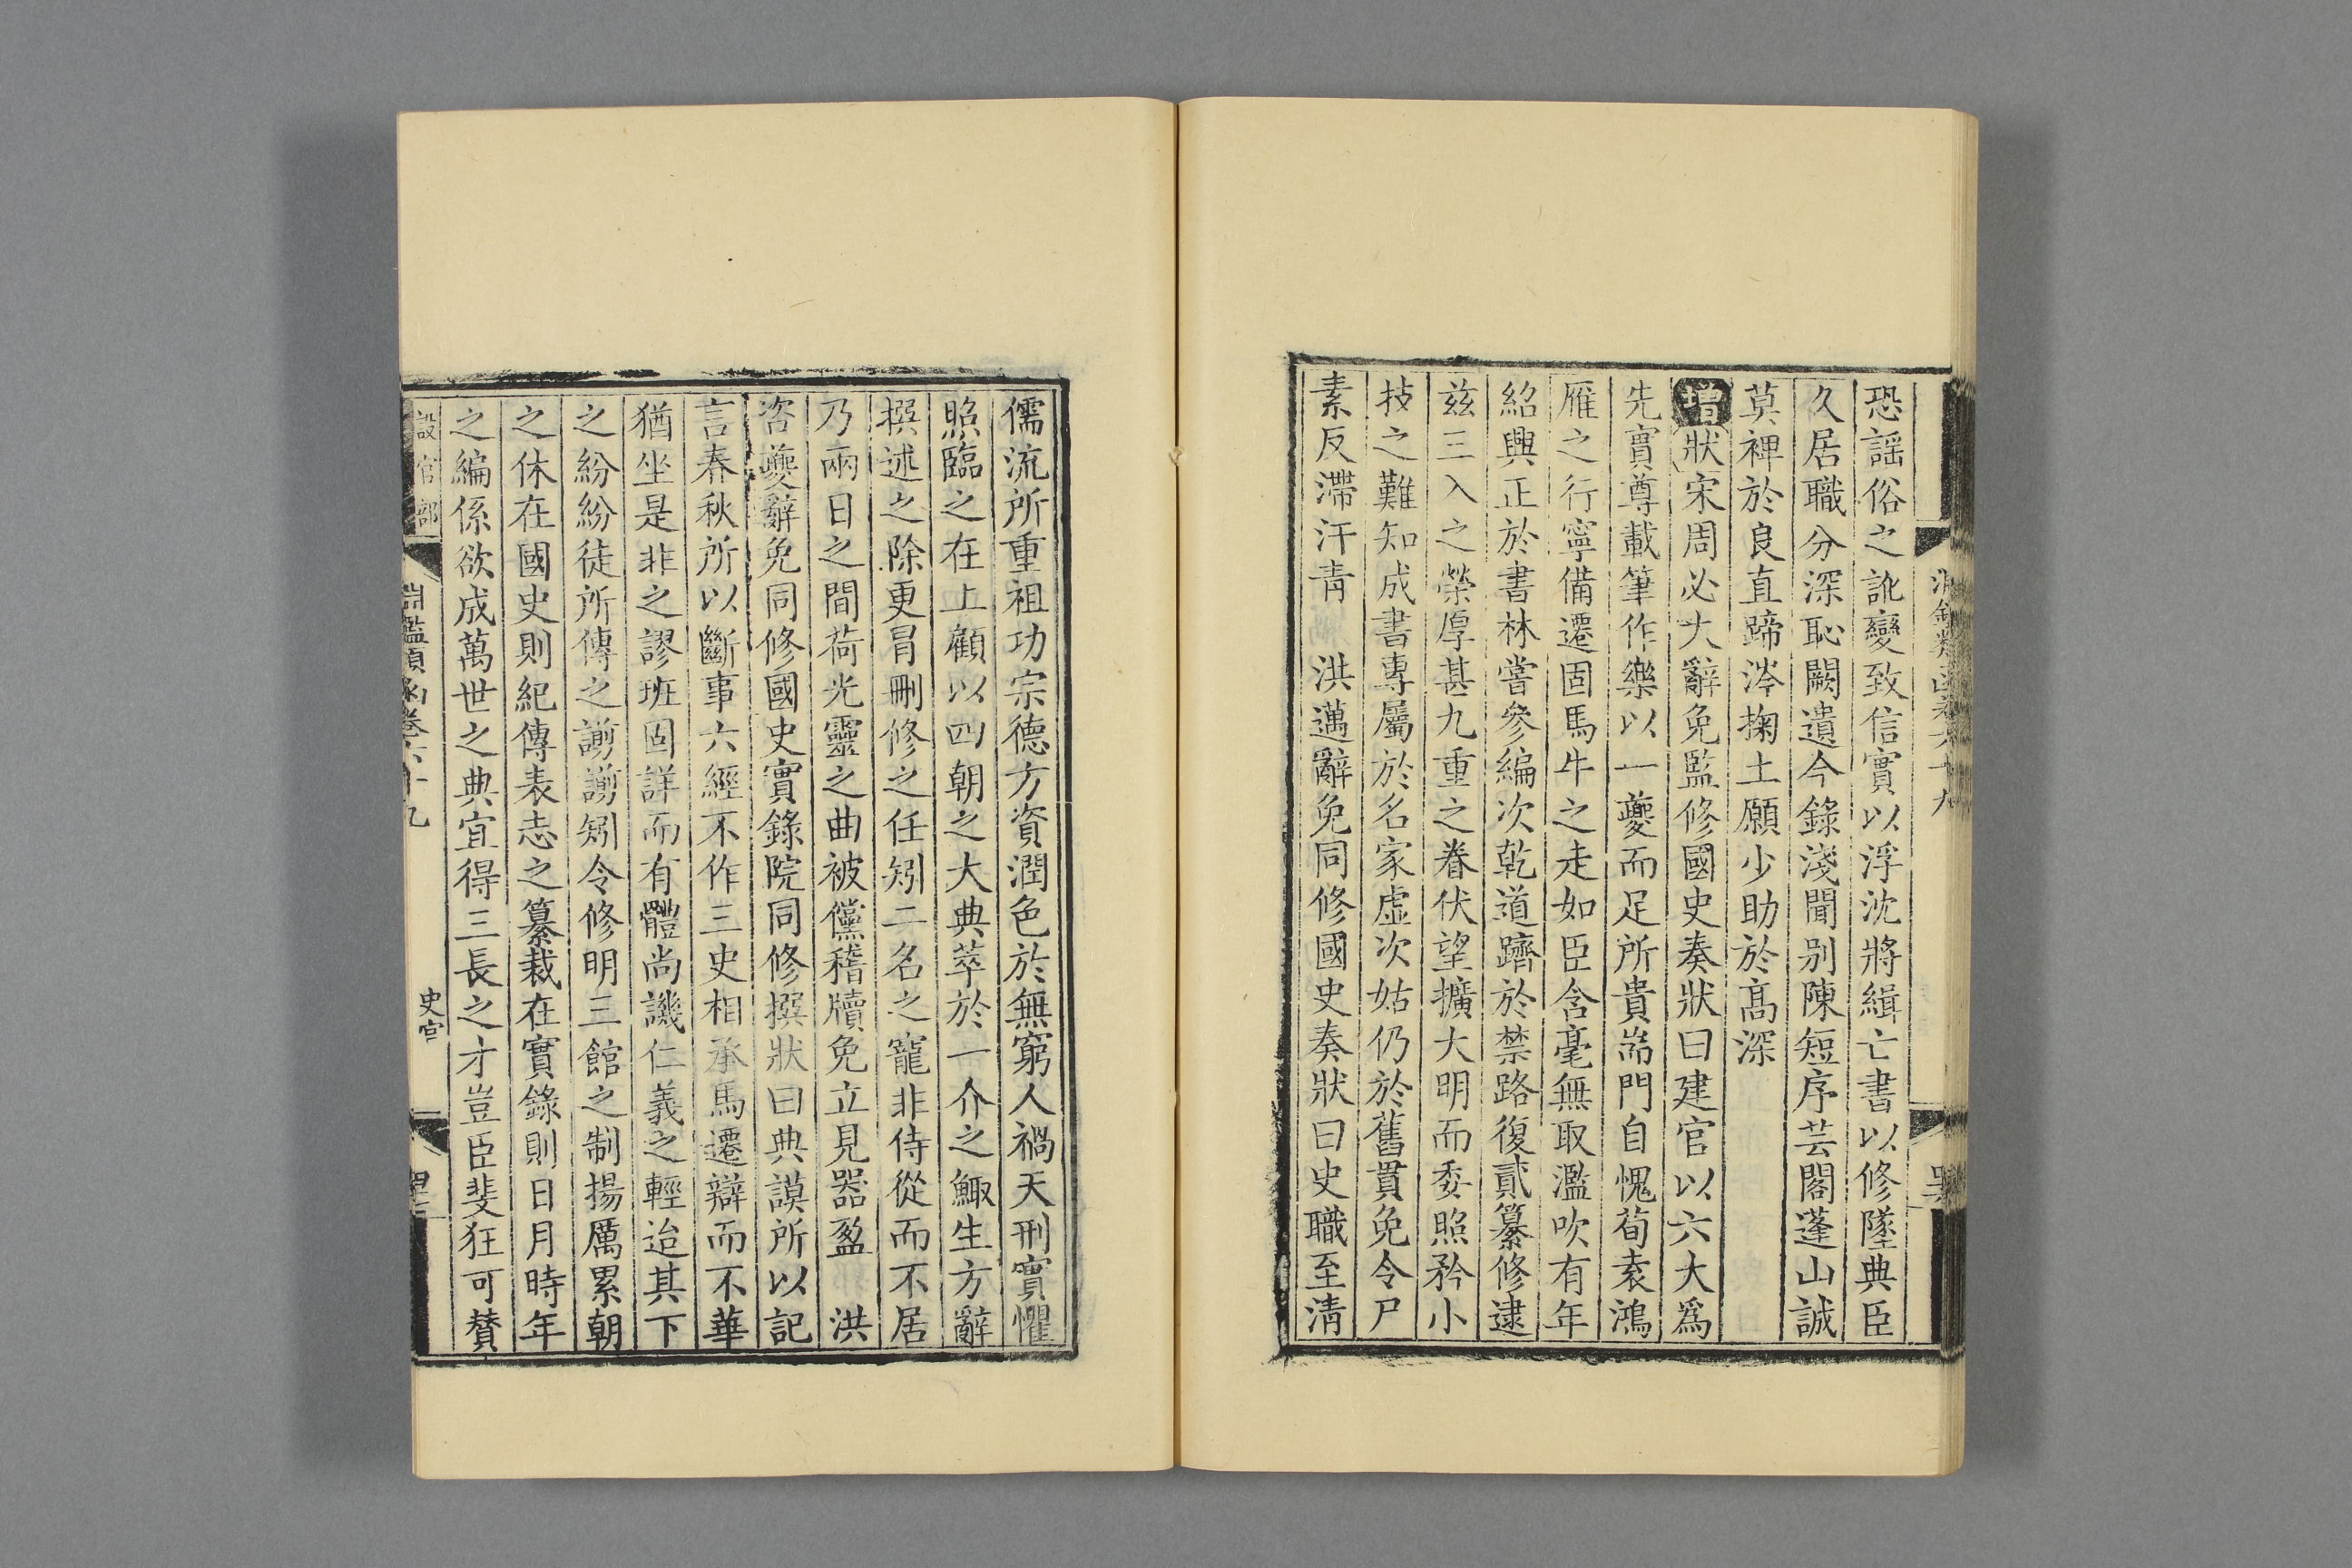 恐謡俗之訛變致信實以浮沈將緝亡書以修墜典臣
久居職分深恥闕遺今錄淺聞别陳短序芸閣蓬山誠
莫裨於良直蹄涔掬土願少助於髙深
增狀宋周必大辭免監修國史奏狀曰建官以六大爲
先實尊載筆作樂以一夔而足所貴耑門自愧荀袁鴻
雁之行寧備遷固馬牛之走如臣含毫無取濫吹有年
紹興正於書林嘗參編次乾道躋於禁路復貳纂修逮
兹三入之榮厚甚九重之眷伏望擴大明而委照矜小
技之難知成書專屬於名家虚次姑仍於舊貫免令尸
素反滯汗青　洪邁辭免同修國史奏狀曰史職至清
儒流所重祖功宗德方資潤色於無窮人禍天刑實懼
照臨之在上顧以四朝之大典萃於一介之鯫生方辭
撰述之除更冒刪修之任矧二名之寵非侍從而不居
乃兩日之間荷光靈之曲被儻稽牘免立見器盈　洪
咨夔辭免同修國史實錄院同修撰狀曰典謨所以記
言春秋所以斷事六經不作三史相承馬遷辯而不華
猶坐是非之謬班固詳而有體尚譏仁義之輕迨其下
之紛紛徒所傳之譾譾矧令修明三館之制揚厲累朝
之休在國史則紀傳表志之纂裁在實錄則日月時年
之編係欲成萬世之典宜得三長之才豈臣斐狂可賛
設官部　淵鑑類函卷六十九　史官